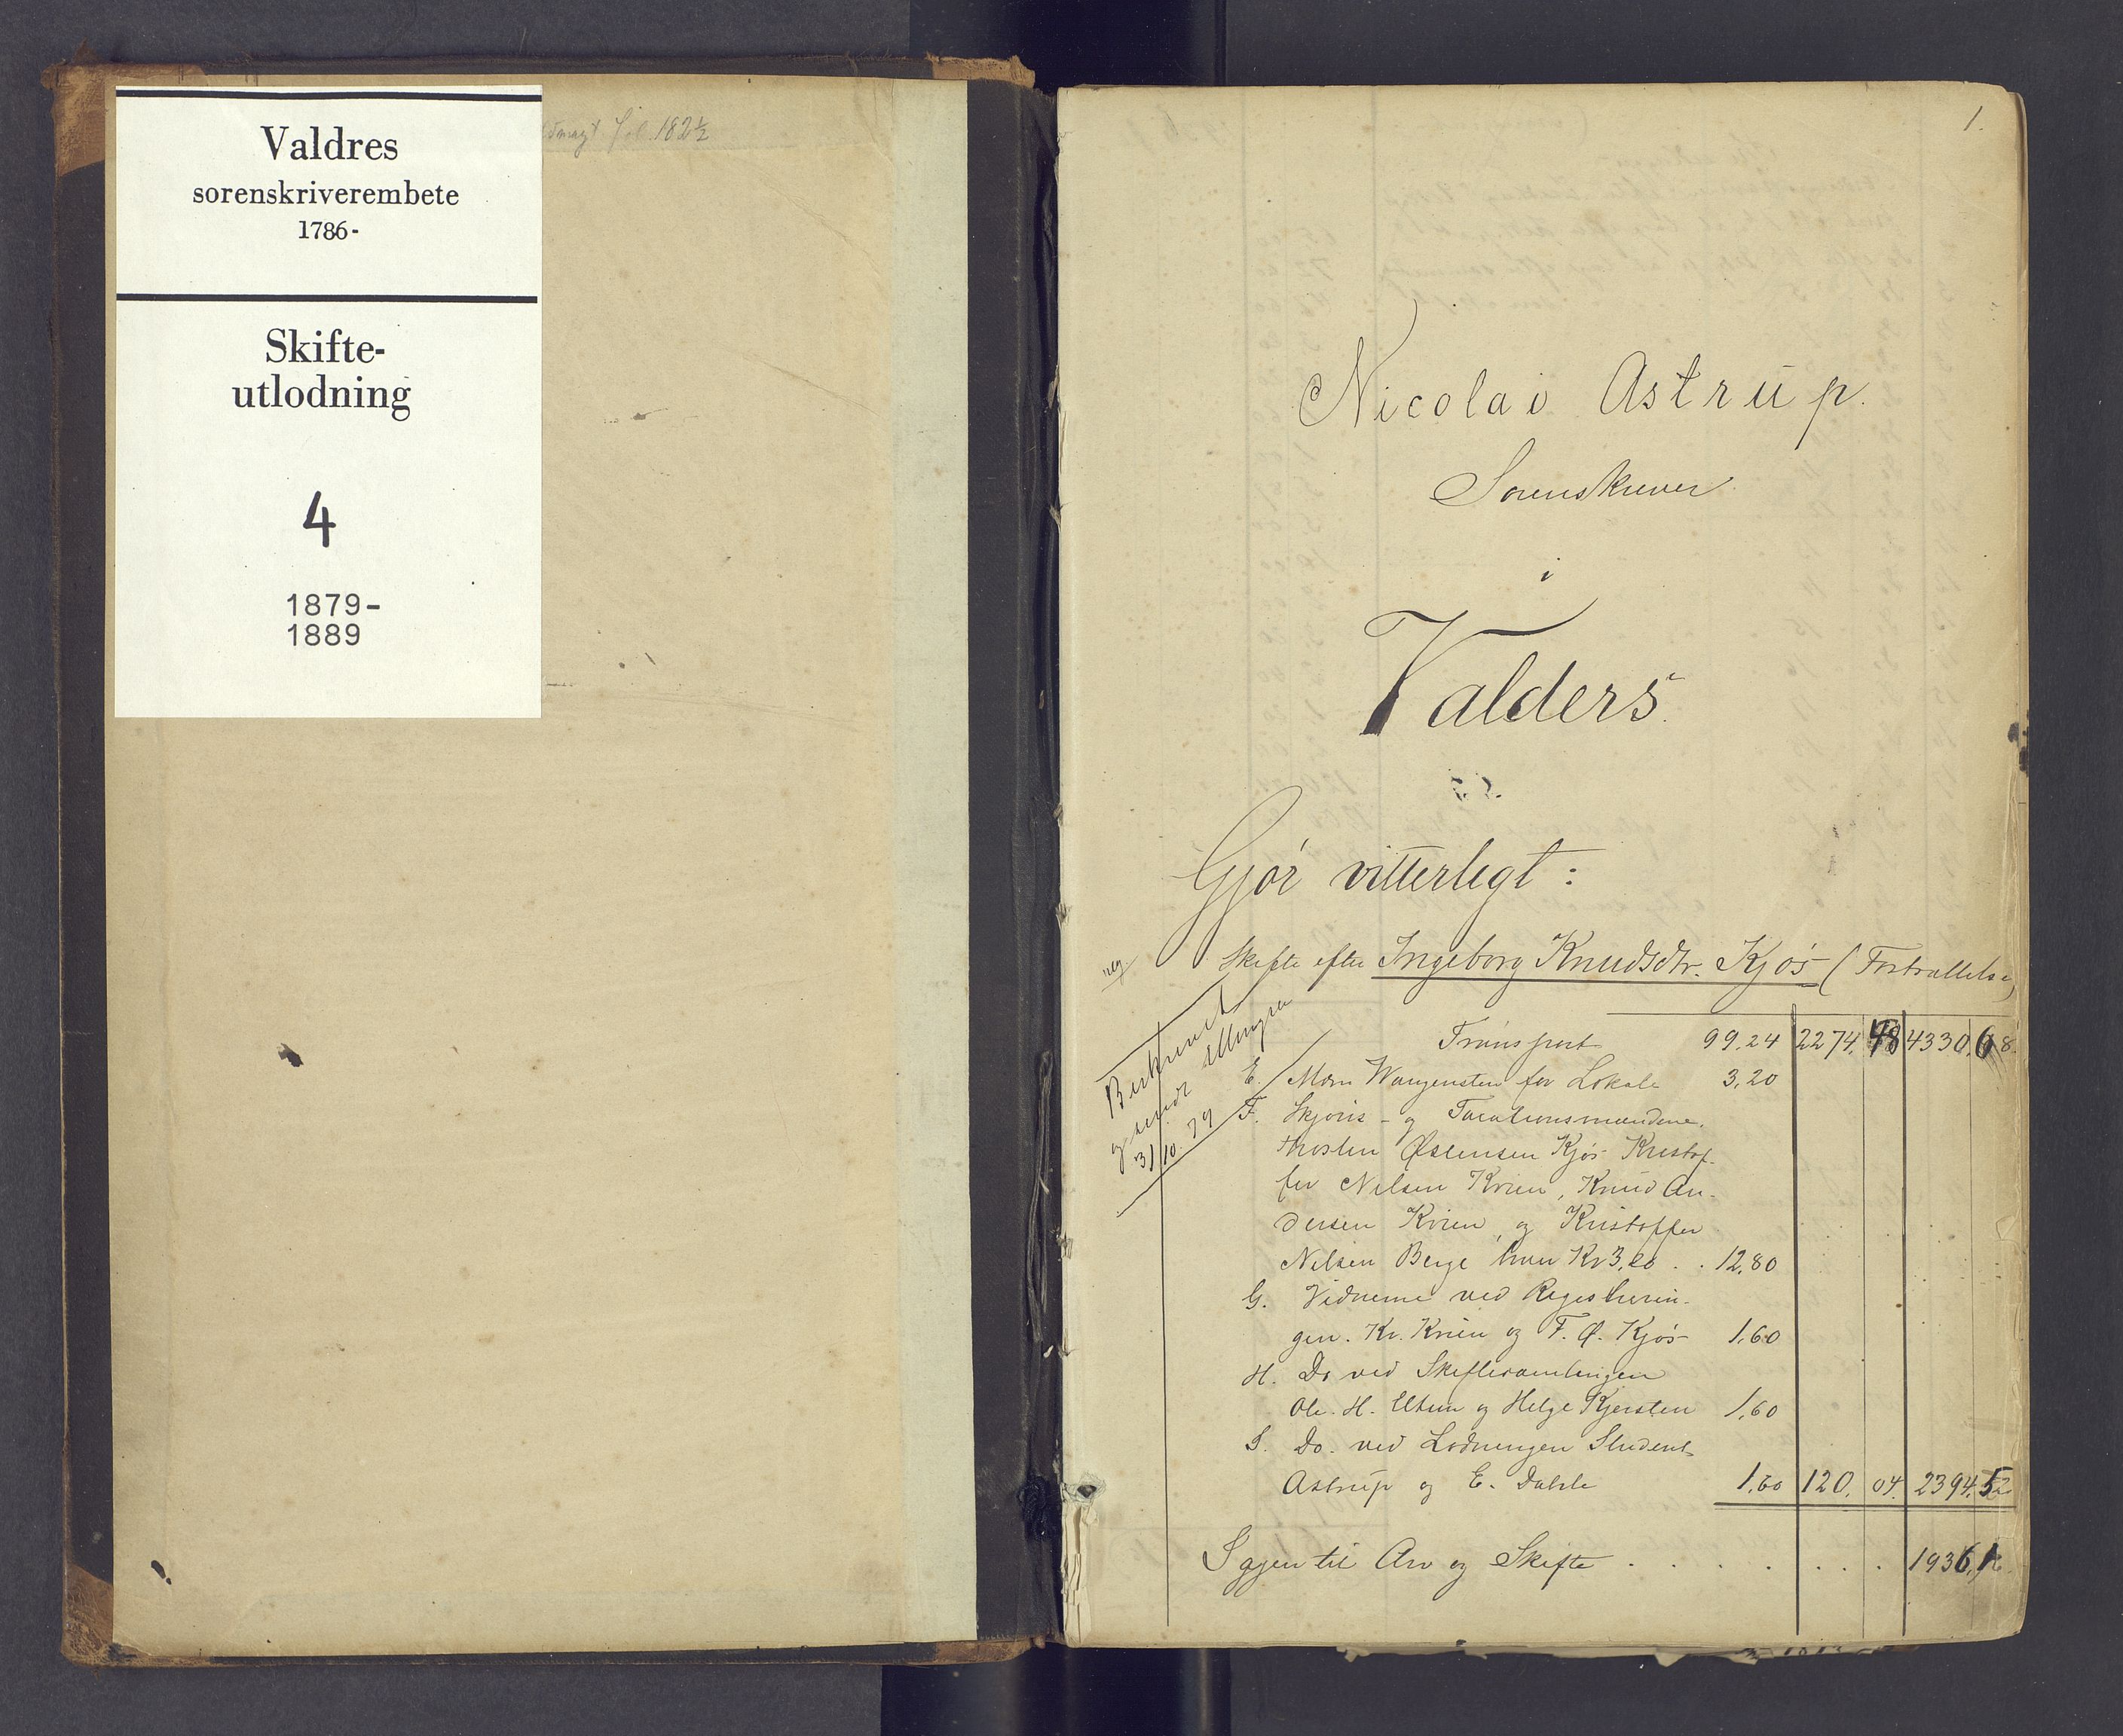 Valdres
sorenskriverembete
1786-
Skifte-
utlodning
4
1879-
1889
fol. 182½
1.
Nicolai Astrup.
Sorenskriver
i
Valders.
Gjør vitterligt:
neg.
Skifte efter Ingeborg Knudsdtr. Kjøs (Fortsættelse)
Beskrevet
og sendt
31/10. 79
Transport 99.24 2274. 48 4330. 68.
E. Wangensten for Lokale 3,20
F. Skjøns- og Taxationsmændene.
Thosten Østensen Kjøs Kristof-
fer Nilsen Kvien, Knud An-
dersen Kvien, og Kristoffer
Nilsen Berge hver Kr 3.20 . . 12,80
G. Vidnerne ved Registerin-
gen. Kr. Kvien og T. Ø. Kjøs 1,60
H. Do ved Skiftesamlingen
Ole. H. Ulhun og Helge Kjersten 1,60
I. Do. ved Lodningen Student
Astrup og E. Dahle 1,60 120. 04. 2394. 52
Igjen til Arv og Skifte . . . . . . . 1936,16.